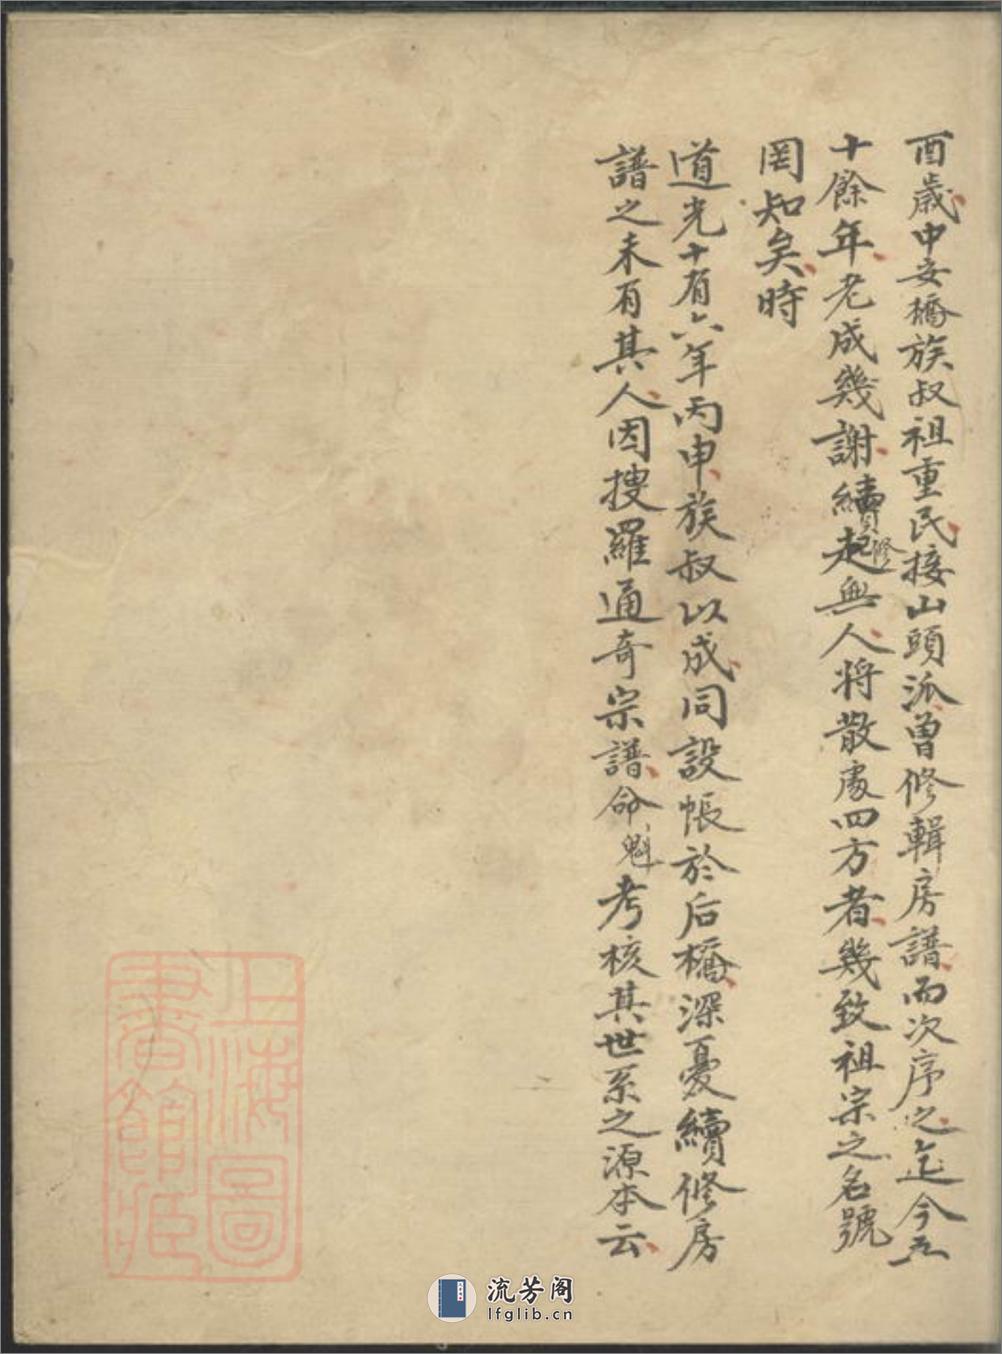 酉歲中安橋族叔祖重民接山頭派曾修輯房譜而次序之迄今五
十餘年老成幾謝續修起無人將散處四方者幾致祖宗之名號
罔知矣時
道光十有六年丙申族叔以成同設帳於后橋深憂續修房
譜之未有其人因搜羅通奇宗譜命魁考核其世系之源本云
上海圖
書館藏
流芳阁
lfglib.cn